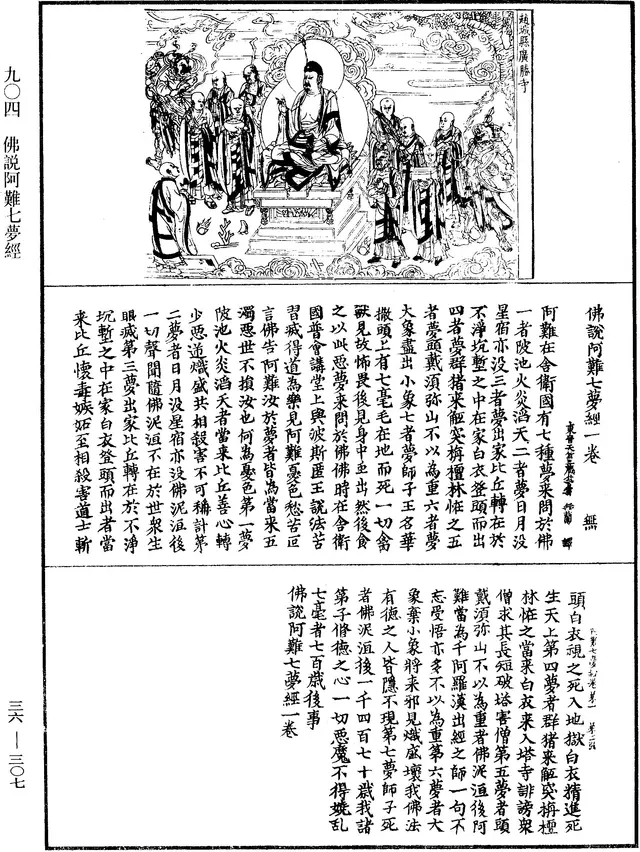 趙城縣廣勝寺
九〇四　佛說阿難七夢經
佛說阿難七夢經一卷　無
東晉天竺三藏竺曇無蘭　譯
阿難在舍衛國有七種夢來問於佛
一者陂池火炎滔天二者夢日月没
星宿亦没三者夢出家比丘轉在於
不淨坑塹之中在家白衣登頭而出
四者夢群猪來觝突栴檀林恠之五
者夢頭戴須弥山不以為重六者夢
大象棄小象七者夢師子王名華
撒頭上有七毫毛在地而死一切禽
獸見故怖畏後見身中虫出然後食
之以此惡夢來問於佛佛時在舍衛
國普會講堂上與波斯匿王說法苦
習滅得道為樂見阿難憂色愁苦叵
言佛告阿難汝於夢者皆為當來五
濁惡世不損汝也何為憂色第一夢
陂池火炎滔天者當來比丘善心轉
少惡逆熾盛共相殺害不可稱計第
二夢者日月没星宿亦没佛泥洹後
一切聲聞隨佛泥洹不在於世衆生
眼滅第三夢出家比丘轉在於不淨
坑塹之中在家白衣登頭而出者當
來比丘懷毒嫉妬至相殺害道士斬
頭白衣視之死入地獄白衣精進死
生天上第四夢者群猪來觝突栴檀
林恠之當來白衣來入塔寺誹謗衆
僧求其長短破塔害僧第五夢者頭
戴須弥山不以為重者佛泥洹後阿
難當為千阿羅漢出經之師一句不
忘受悟亦多不以為重第六夢者大
象棄小象將來邪見熾盛壞我佛法
有德之人皆隱不現第七夢師子死
者佛泥洹後一千四百七十歲我諸
弟子修德之心一切惡魔不得嬈乱
七毫者七百歲後事
佛說阿難七夢經一卷
三六 — 三〇七